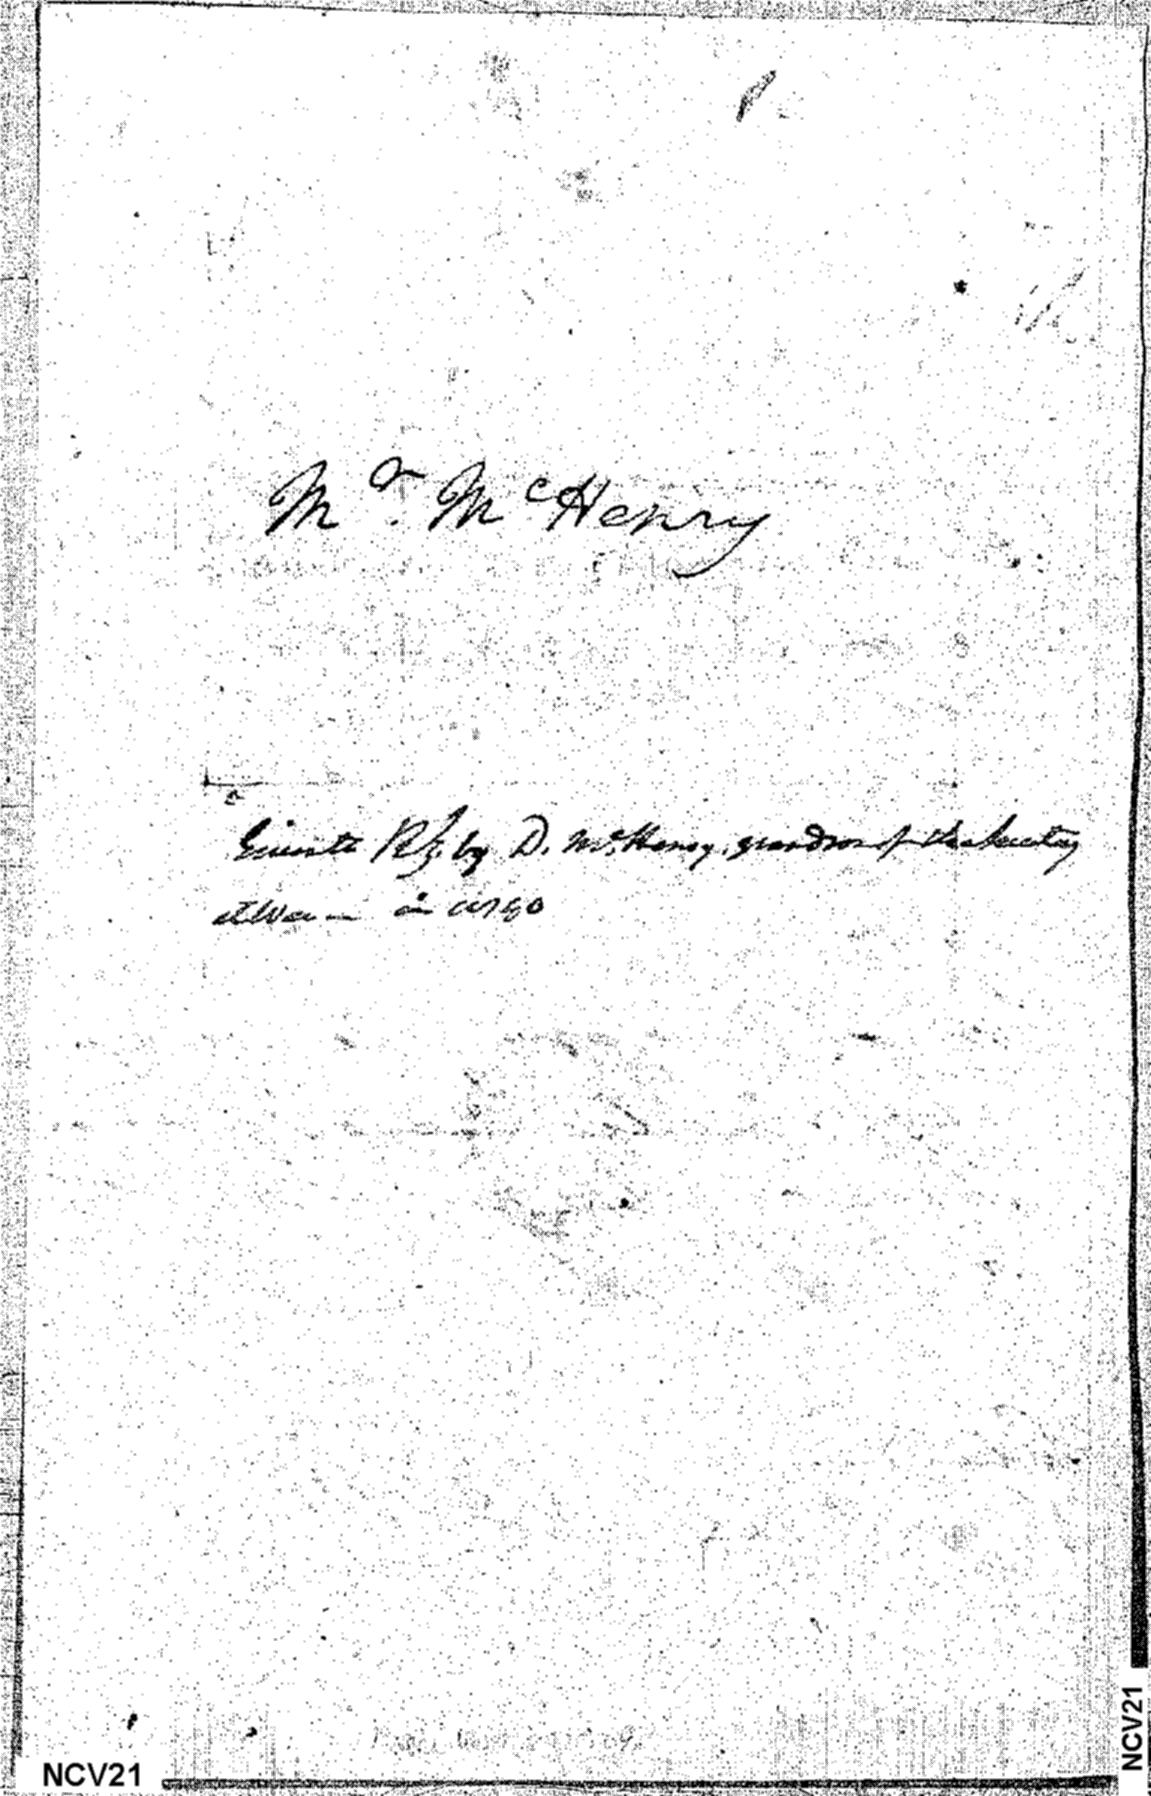 Mr. McHenry
Given to by D. McHenry, grandson of the Secretary
at War in
NCV21
NCV21